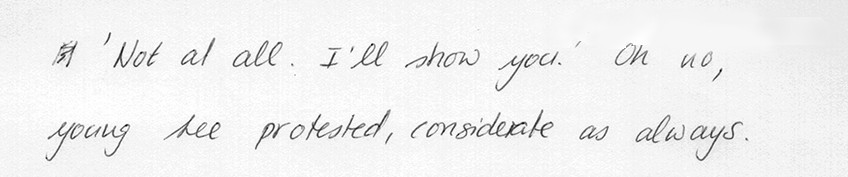 'Not at all. I'll show you.' Oh no,
young Lee protested, considerate as always.